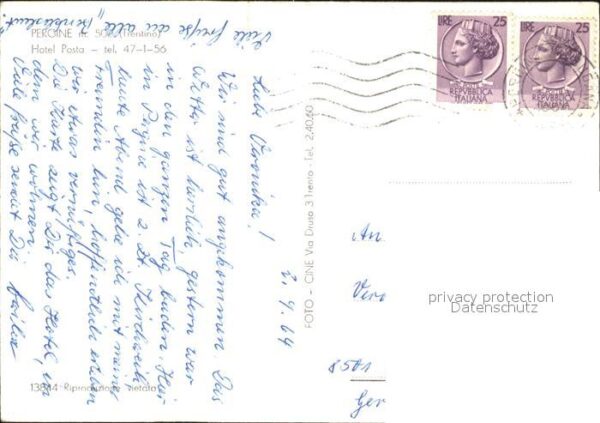 PERGINE m. 500 (Trentino)
Hotel Posta - tel. 47-1-56
Viele Grüße an alle
Liebe Veronika!
Wir sind gut angekommen. Das
Wetter ist herrlich, gestern war
in den ganzen Tag baden. Hier
in Pergine ist z. Zt. Kirchweih
heute Abend gehe ich mit meiner
Freundin hin, hoffendlich erleben
wir etwas vernüftiges.
Die Karte zeigt Dir das Hotel, in
dem wir wohnen.
Viele Grüße sendet Dir
2. 9. 64
13844 Riproduzione vietata
FOTO - CINE Via Drusa 3 Trento - Tel. 2.40.60
LIRE 25
REPVBBLICA
ITALIANA
LIRE 25
REPVBBLICA
ITALIANA
An
Vero
privacy protection
Datenschutz
8501
Ger